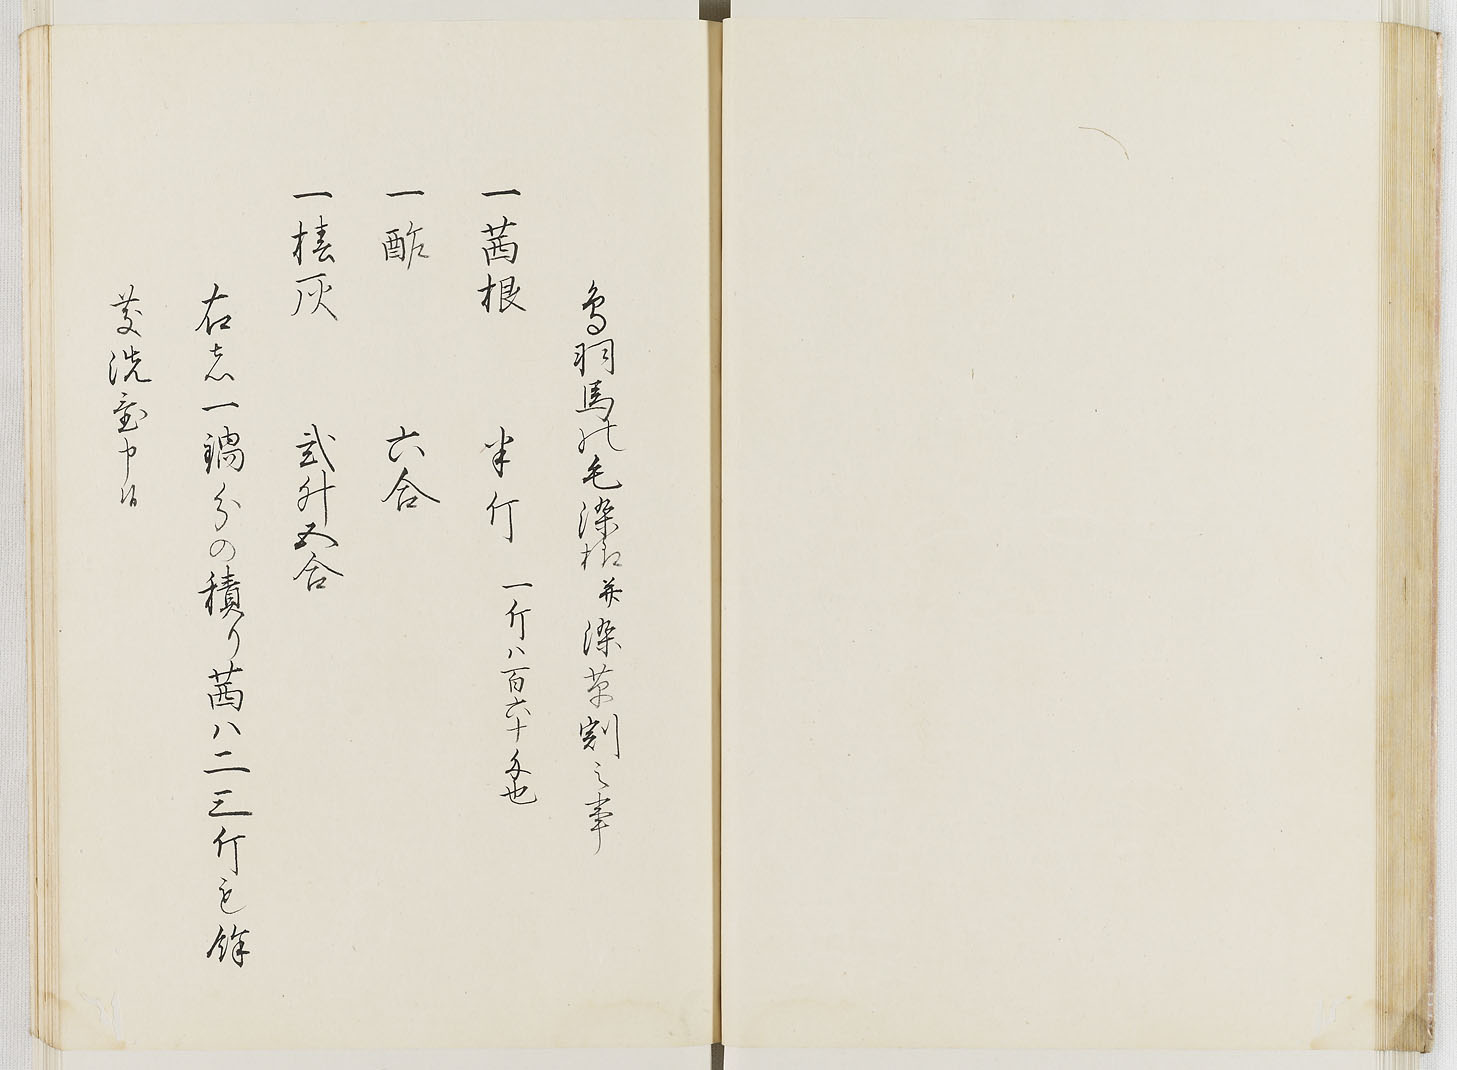 鳥羽馬の毛染様并染草割之事
一茜根　半斤　一斤ハ百六十匁也
一酢　六合
一椿灰　弐升五合
右ハ一鍋分の積り茜ハ二三斤も餘